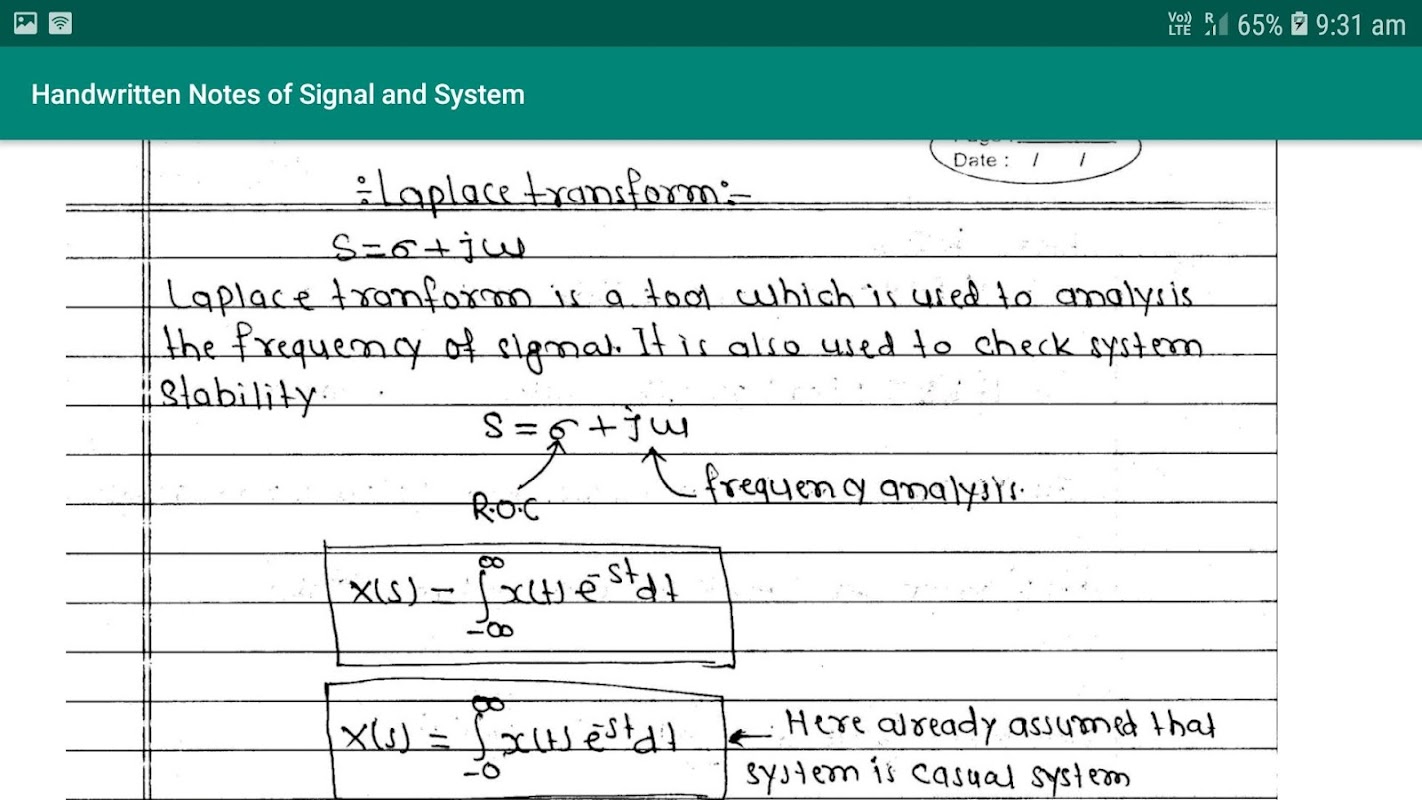 Vo)) LTE R 65% 9:31 am
Handwritten Notes of Signal and System
Date : / /
÷Laplace transform:-
S=σ+jω
Laplace tranform is a tool which is used to analysis
the frequency of signal. It is also used to check system
Stability.
S=σ+jω
frequency analysis.
R.O.C
X(s) = ∫ x(t) e^-st dt
∞
-∞
X(s) = ∫ x(t) e^-st dt ← Here already assumed that
∞
-0
system is casual system